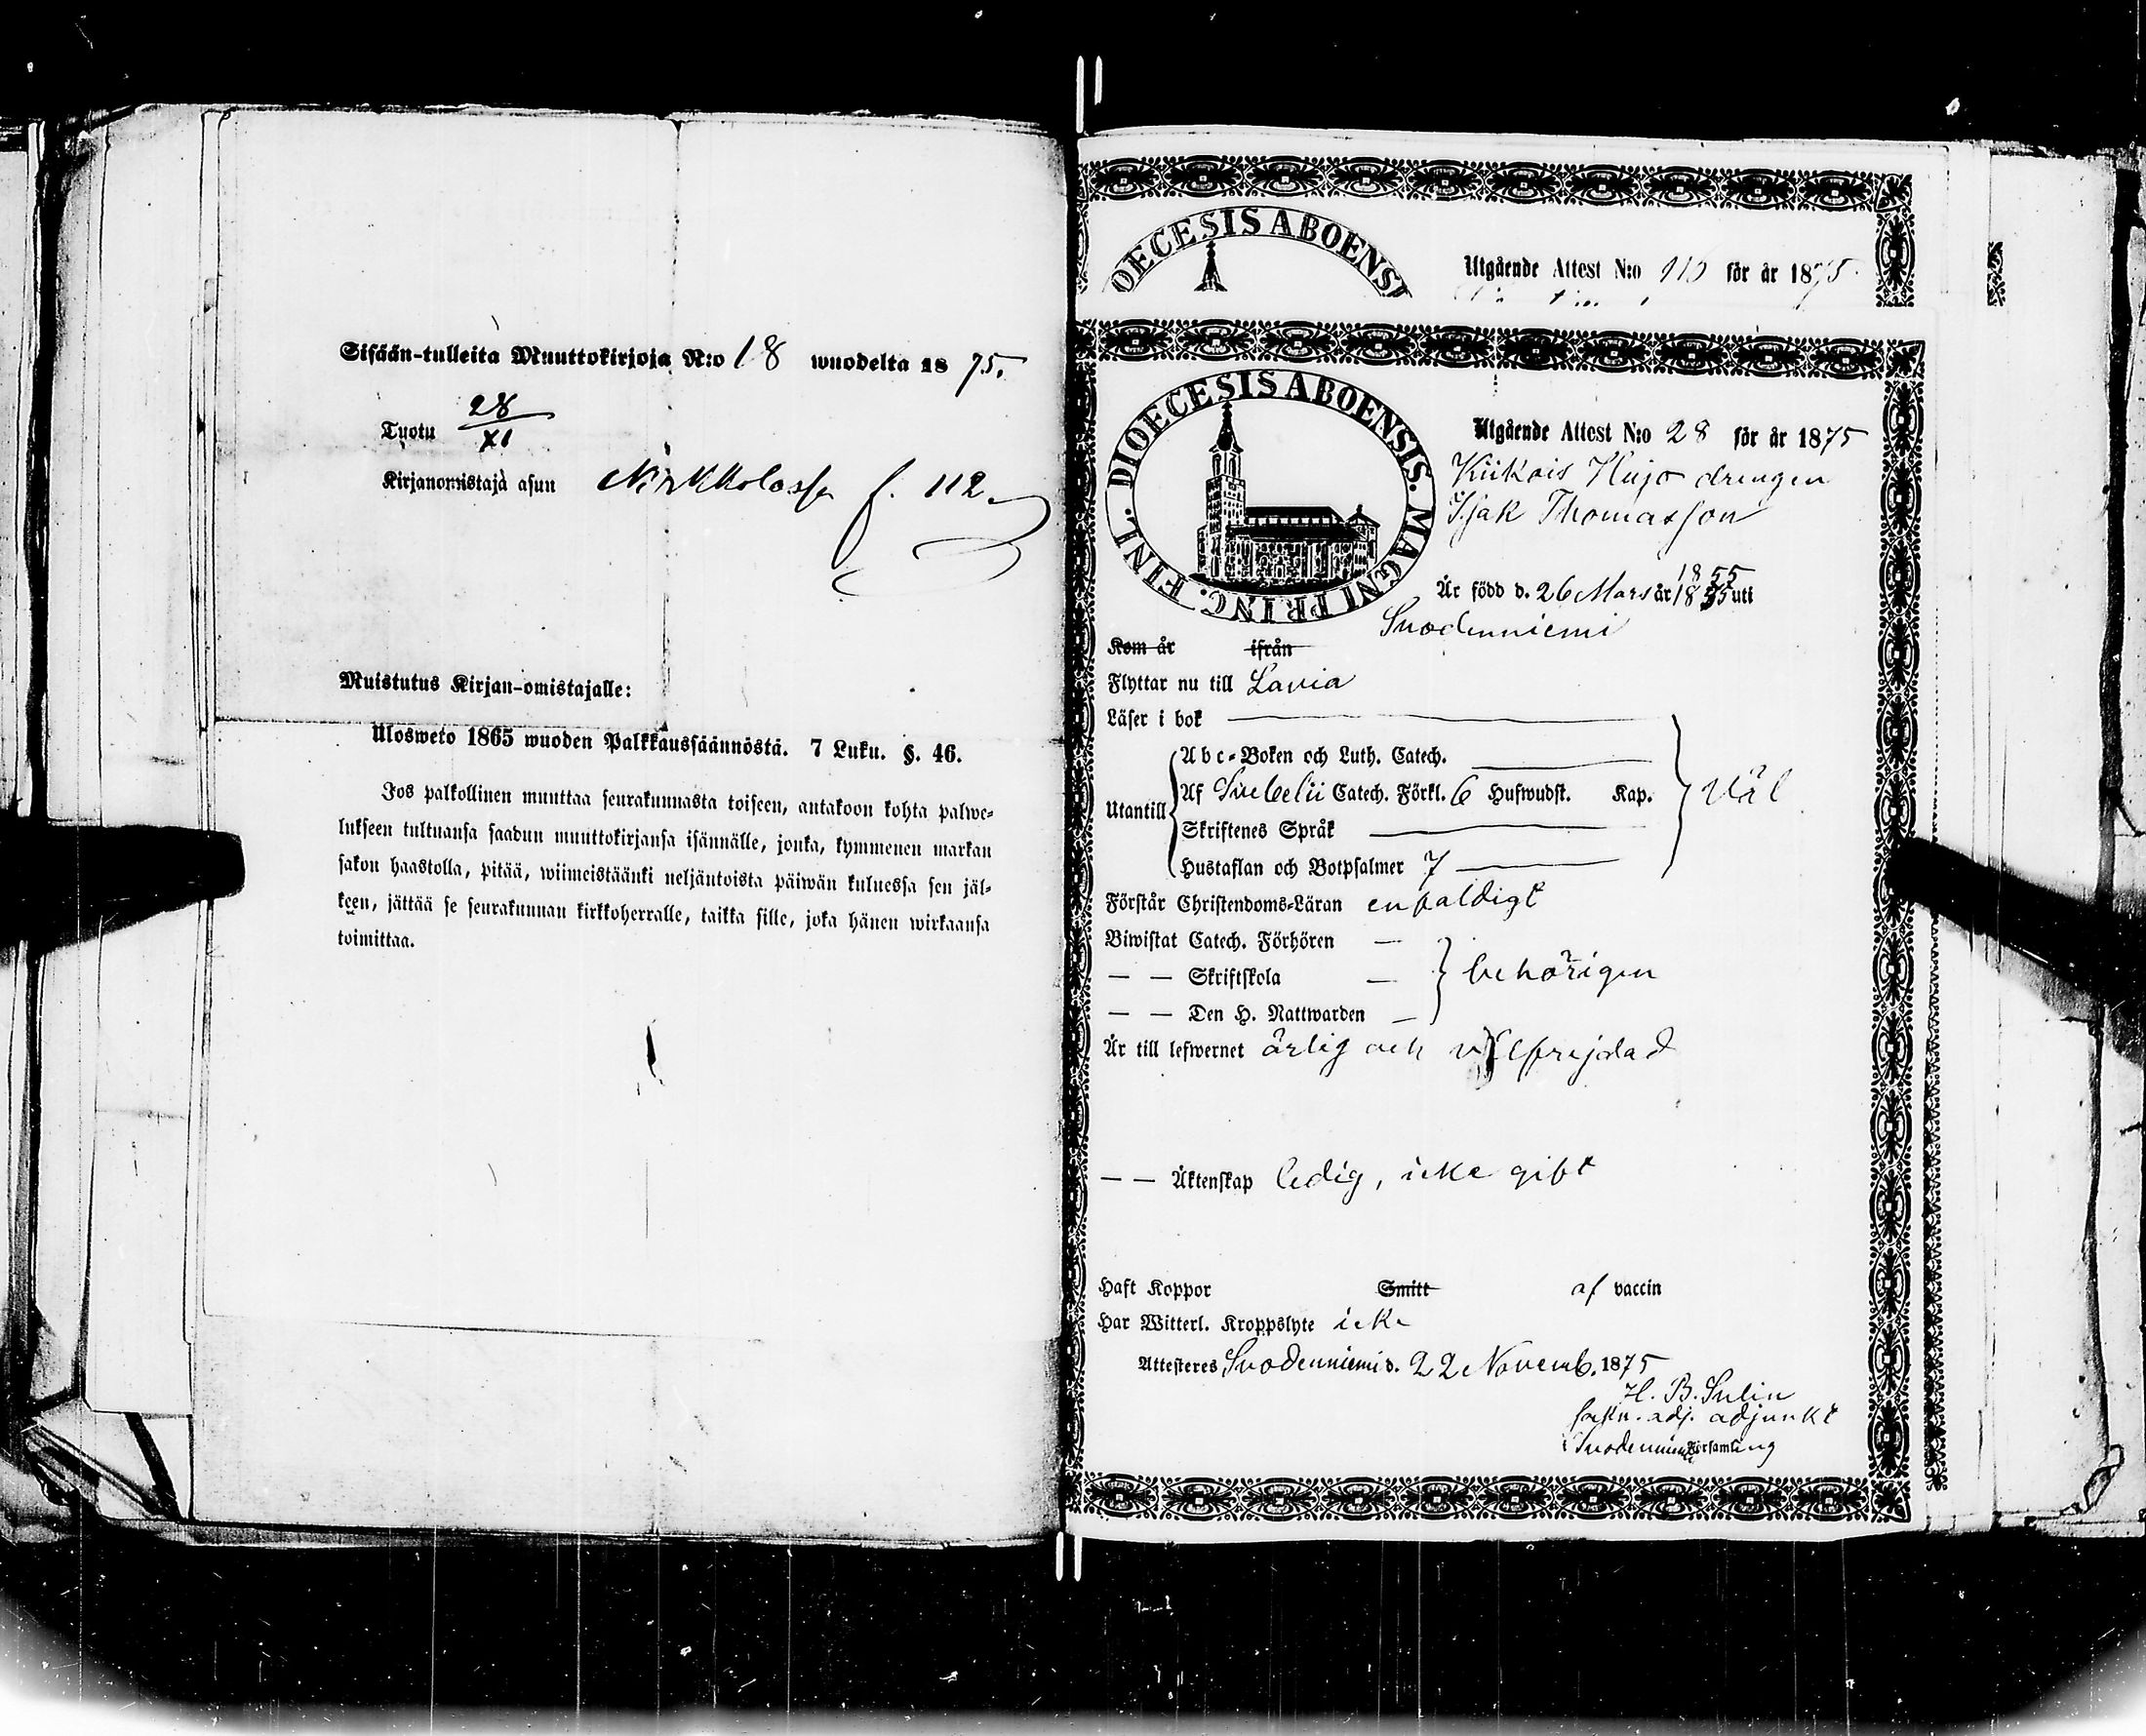 Sisään-tulleita Muuttokirjoja N:o 18 wuodelta 1875.
Tuotu 28/XI
Kirjanomistaja asuu f. 112
Muistutus Kirjan-omistajalle:
Ulosweto 1865 wuoden Palkkaussäännöstä. 7 Luku. §. 46.
Jos palkollinen muuttaa seurakunnasta toiseen, antakoon kohta palwe-
lukseen tultuansa saadun muuttokirjansa isännälle, jonka, kymmenen markan
sakon haastolla, pitää, wiimeistäänki neljäntoista päiwän kuluessa sen jäl-
keen, jättää se seurakunnan kirkkoherralle, taikka sille, joka hänen wirkaansa
toimittaa.
OECESIS ABOENSI
Utgående Attest N:o för år 1875.
DIOECESIS ABOENSIS. MAGNI PRINC. FINL.
Utgående Attest N:o 28 för år 1875
Kiikois Hujo drengen
Isak Thomasson
1855
Är född d. 26 Mars år 1855 uti
Suodenniemi
Kom år ifrån
Flyttar nu till Lavia
Läser i bok
Utantill
Abc-Boken och Luth. Catech.
Af Svebelii Catech. Förkl. 6 Hufwudst. Kap. Väl
Skriftenes Språk
Hustaflan och Botpsalmer 7
Förstår Christendoms-Läran enfaldigt
Biwistat Catech. Förhören
— — Skriftskola — behörigen
— — Den H. Nattwarden —
Är till lefwernet ärlig och välfrejdad
— — Äktenskap ledig, icke gift
Haft Koppor Smitt af vaccin
Har Witterl. Kroppslyte icke
Attesteres Suodenniemi d. 22 Novemb. 1875
H. B. Sulin
adj. adjunkt
i Suodenniemi Församling